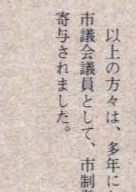 以上の方々は、多年に
市議会議員として、市制
寄与されました。